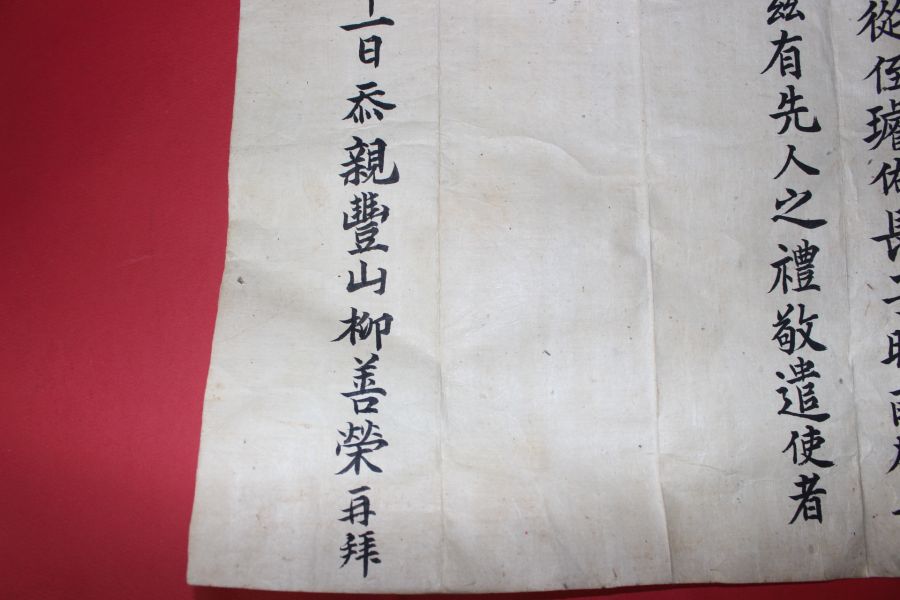 從侄璿佑長子
茲有先人之禮敬遣使者
十一日忝親豐山柳善榮再拜